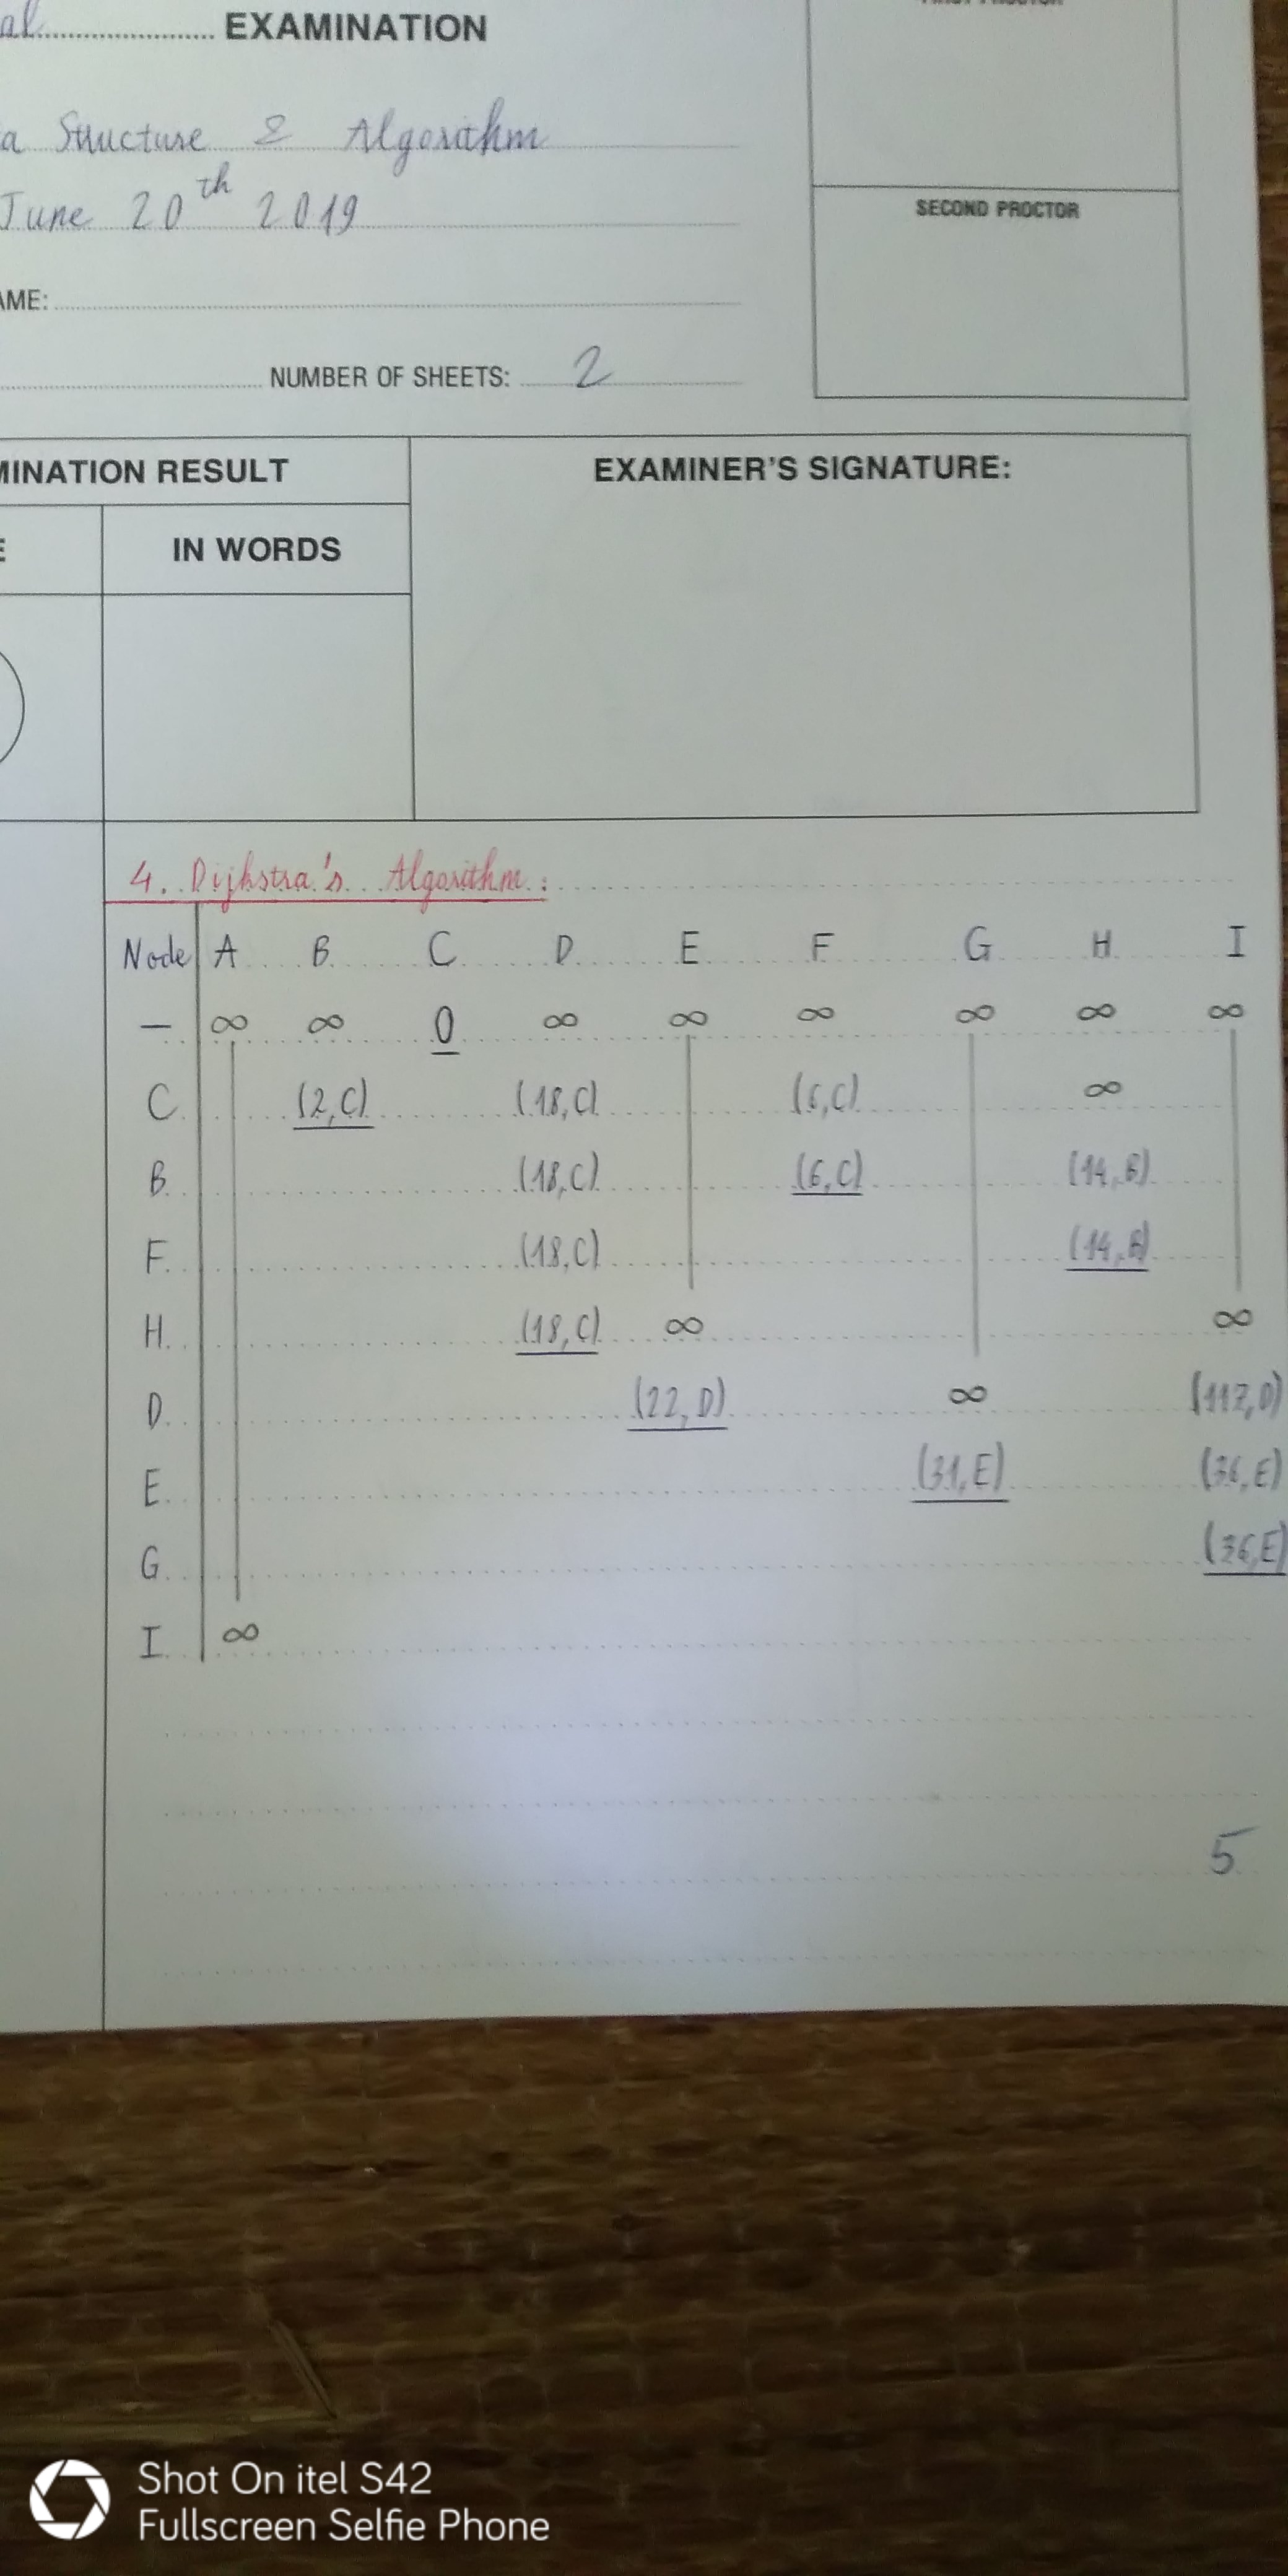 al........................ EXAMINATION
a Structure & Algorithm
June 20th 2019
SECOND PROCTOR
AME:
NUMBER OF SHEETS: 2
MINATION RESULT
EXAMINER'S SIGNATURE:
E
IN WORDS
4. Dijkstra's Algorithm :
Node A B C D E F G H I
— ∞ ∞ 0 ∞ ∞ ∞ ∞ ∞ ∞
C (2,C) (18,C) (6,C) ∞
B (18,C) (6,C) (14,B)
F (18,C) (14,B)
H (18,C) ∞ ∞
D (22,D) ∞ (117,D)
E (31,E) (36,E)
G (36,E)
I ∞
5
Shot On itel S42
Fullscreen Selfie Phone